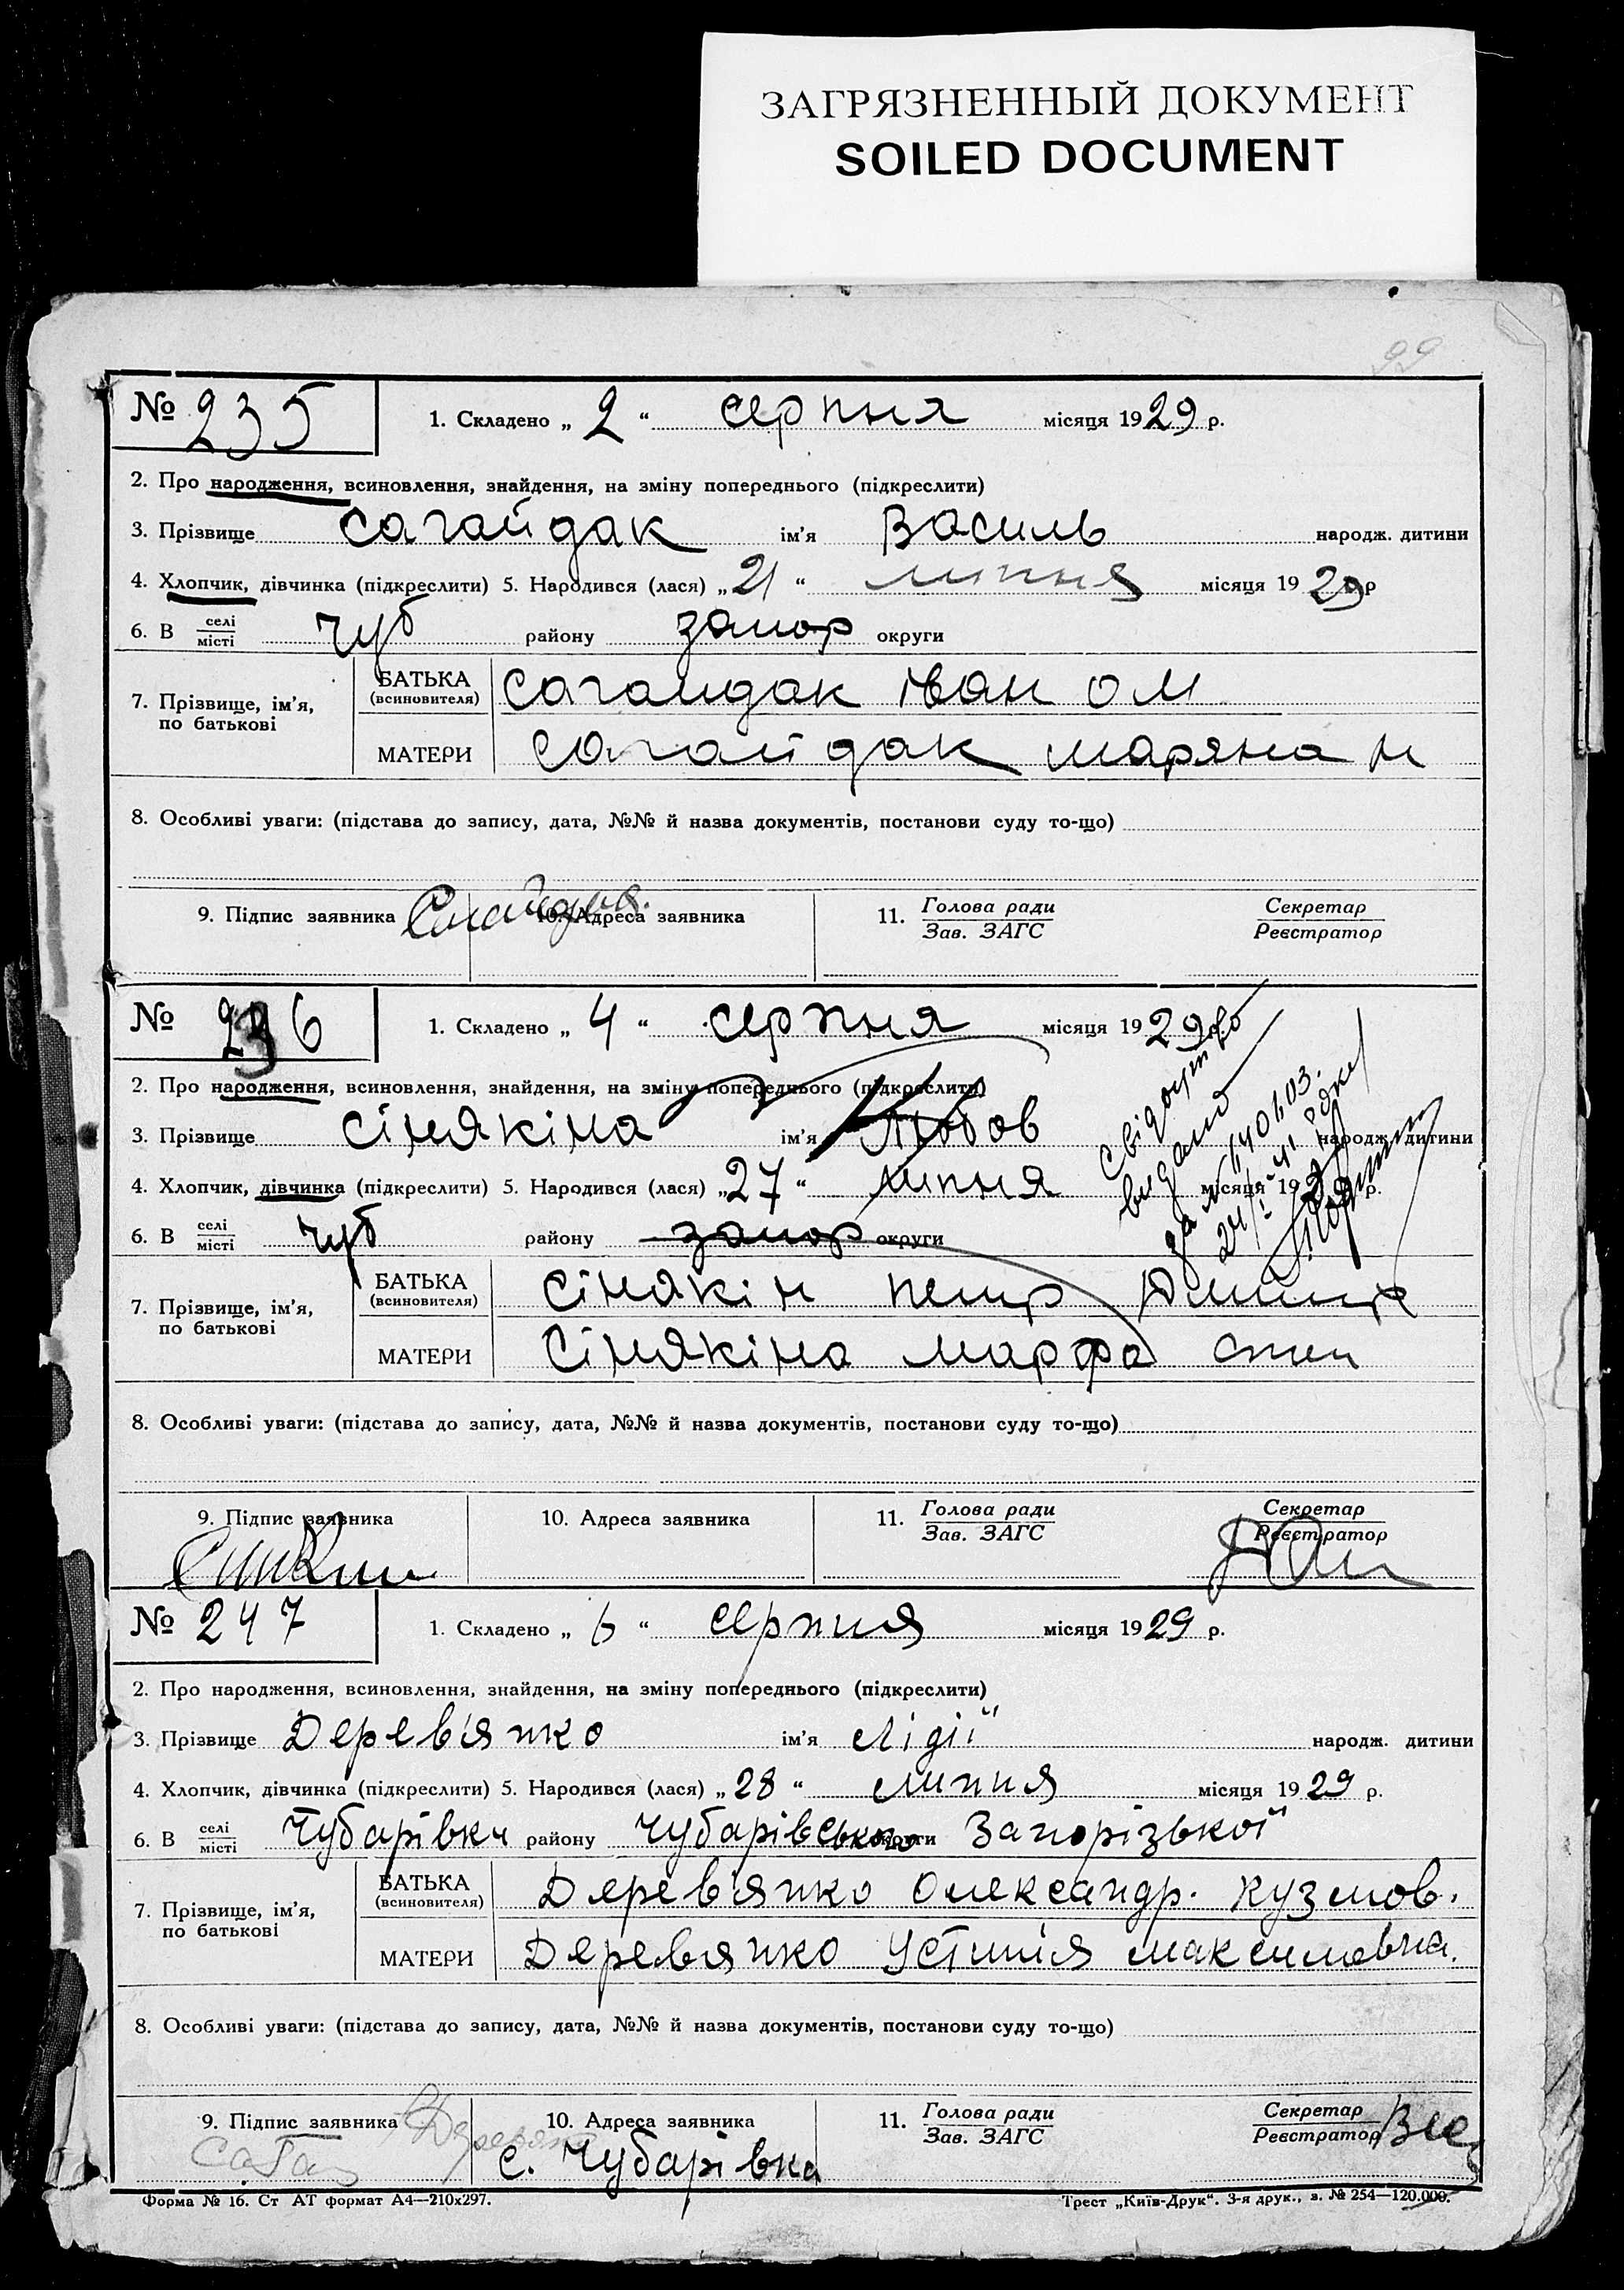 ЗАГРЯЗНЕННЫЙ ДОКУМЕНТ
SOILED DOCUMENT
99
№ 235 1. Складено „ 2 “ серпня місяця 1929 р.
2. Про народження, всиновлення, знайдення, на зміну попереднього (підкреслити)
3. Прізвище Сагайдак ім'я Василь народж. дитини
4. Хлопчик, дівчинка (підкреслити) 5. Народився (лася) „ 21 “ липня місяця 1929 р
6. В селі/місті Чуб району запор округи
7. Прізвище, ім'я, по батькові
БАТЬКА (всиновителя) Сагаидак іван ом
МАТЕРИ Сагайдак маряна н
8. Особливі уваги: (підстава до запису, дата, №№ й назва документів, постанови суду то-що)
9. Підпис заявника 10. Адреса заявника 11. Голова ради/Зав. ЗАГС Секретар/Реєстратор
№ 236 1. Складено „ 4 “ серпня місяця 1929 р.
2. Про народження, всиновлення, знайдення, на зміну попереднього (підкреслити)
3. Прізвище Сінякіна ім'я Любов народж. дитини
4. Хлопчик, дівчинка (підкреслити) 5. Народився (лася) „ 27 “ липня місяця 1929 р.
6. В селі/місті Чуб району запор округи
Свідоцтво
видано
7. Прізвище, ім'я, по батькові
БАТЬКА (всиновителя) Сінякін петр Дмитр
МАТЕРИ Сінякіна марфа степ
8. Особливі уваги: (підстава до запису, дата, №№ й назва документів, постанови суду то-що)
9. Підпис заявника 10. Адреса заявника 11. Голова ради/Зав. ЗАГС Секретар/Реєстратор
№ 247 1. Складено „ 6 “ серпня місяця 1929 р.
2. Про народження, всиновлення, знайдення, на зміну попереднього (підкреслити)
3. Прізвище Дерев'янко ім'я Лідії народж. дитини
4. Хлопчик, дівчинка (підкреслити) 5. Народився (лася) „ 28 “ липня місяця 1929 р.
6. В селі/місті Чубарівки району Чубарівського округи Запорізької
7. Прізвище, ім'я, по батькові
БАТЬКА (всиновителя) Дерев'янко Олександр. Кузмов.
МАТЕРИ Деревянко Устинія максимовна.
8. Особливі уваги: (підстава до запису, дата, №№ й назва документів, постанови суду то-що)
9. Підпис заявника 10. Адреса заявника 11. Голова ради/Зав. ЗАГС Секретар/Реєстратор
с. Чубарівка
Форма № 16. Ст АТ формат А4—210х297. Трест „Київ-Друк“. 3-я друк., з. № 254—120.000.